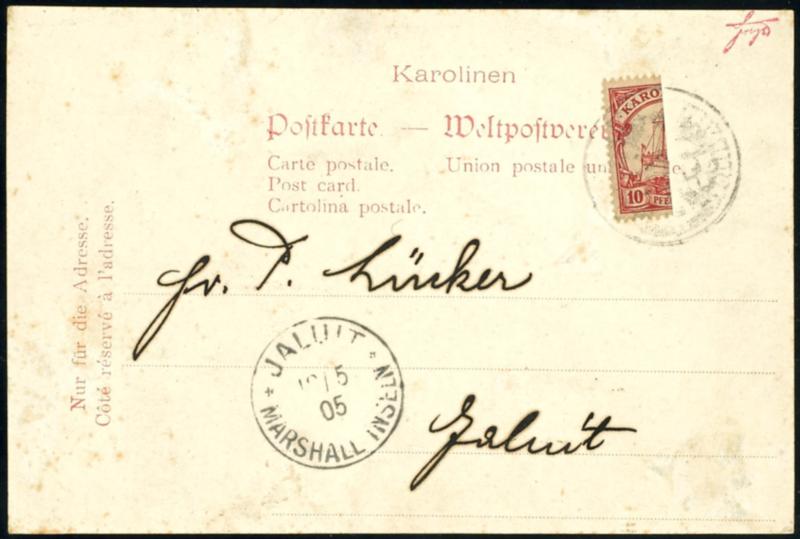 Karolinen
Postkarte. — Weltpostverei
Carte postale. Union postale un e.
Post card.
Cartolina postale.
KARO
10 PFE
Nur für die Adresse.
Côté réservé à l'adresse.
Hr. P. Lücker
JALUIT
5
05
* MARSHALL INSELN *
Jaluit